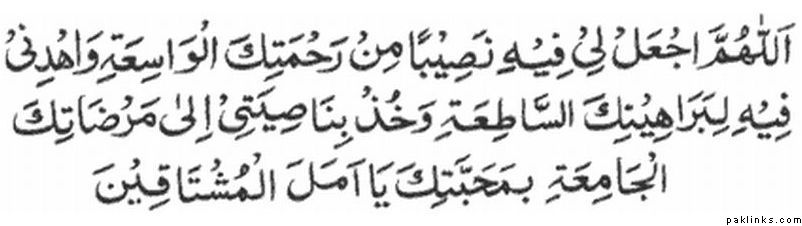 اَللّٰهُمَّ اجْعَلْ لِيْ فِيْهِ نَصِيْبًا مِنْ رَحْمَتِكَ الْوَاسِعَةِ وَاهْدِنِيْ
فِيْهِ لِبَرَاهِيْنِكَ السَّاطِعَةِ وَخُذْ بِنَاصِيَتِيْ اِلىٰ مَرْضَاتِكَ
الْجَامِعَةِ بِمَحَبَّتِكَ يَا اَمَلَ الْمُشْتَاقِيْنَ
paklinks.com